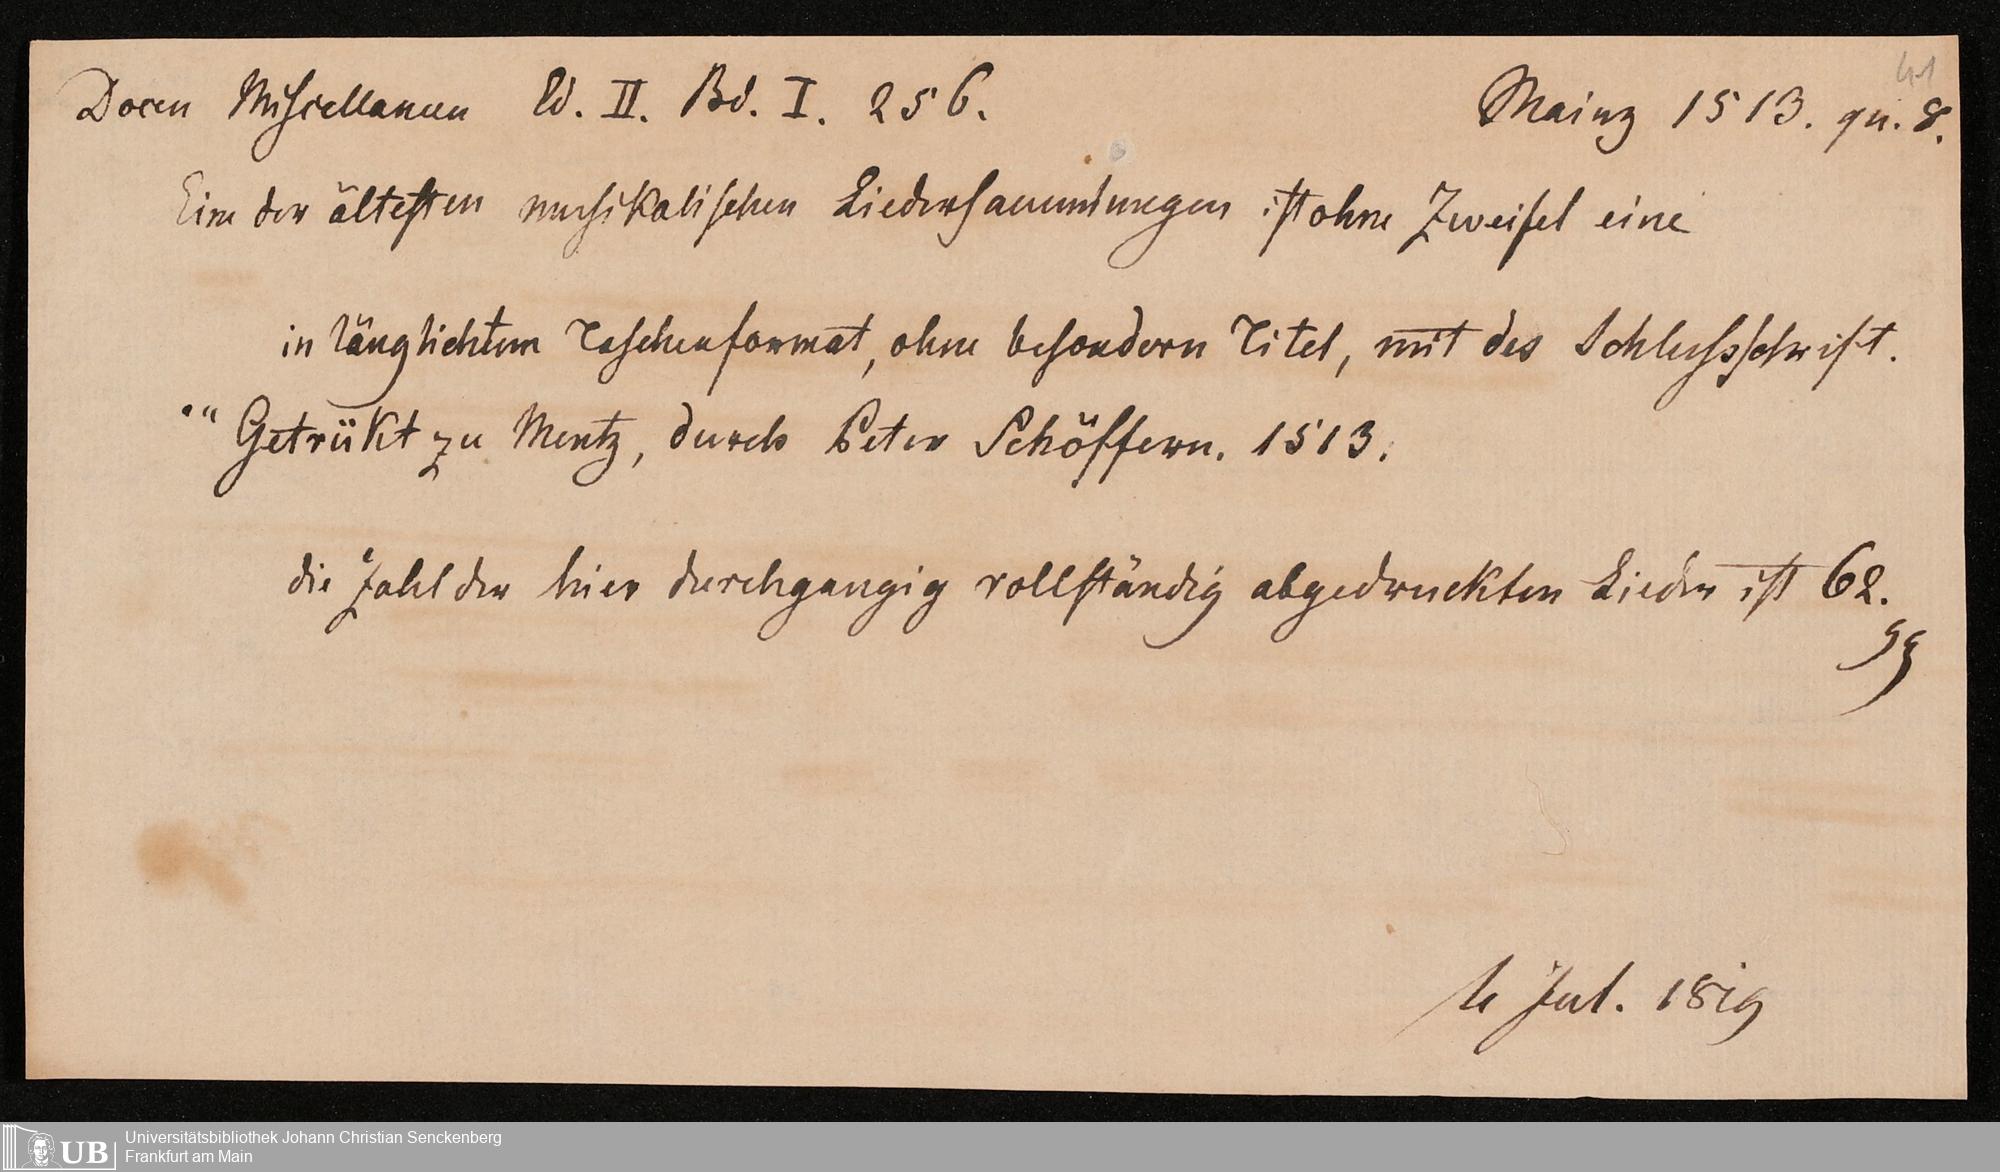 41
Docen Miscellaneen Ed. II. Bd. I. 256. Mainz 1513. qu. 8.
Eine der ältesten musikalischen Liedersammlungen ist ohne Zweifel eine
in länglichtem Taschenformat, ohne besondern Titel, mit des Schlussschrift.
"Getrükt zu Mentz, durch Peter Schöffern. 1513.
die Zahl der hier durchgangig vollständig abgedruckten Lieder ist 62.
Jul. 1819
UB Universitätsbibliothek Johann Christian Senckenberg
Frankfurt am Main